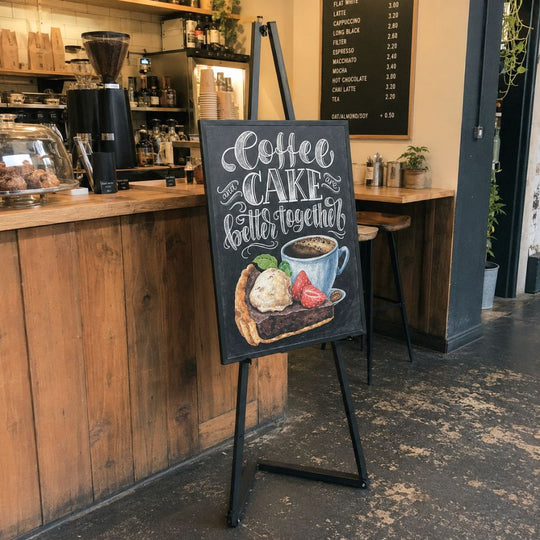 Coffee
and CAKE are
better together
FLAT WHITE 3.00
LATTE 3.00
CAPPUCCINO 3.00
LONG BLACK 2.80
FILTER 2.50
ESPRESSO 2.20
MACCHIATO 2.40
MOCHA 3.20
HOT CHOCOLATE 3.20
CHAI LATTE 3.20
TEA 2.20
OAT/ALMOND/SOY + 0.50